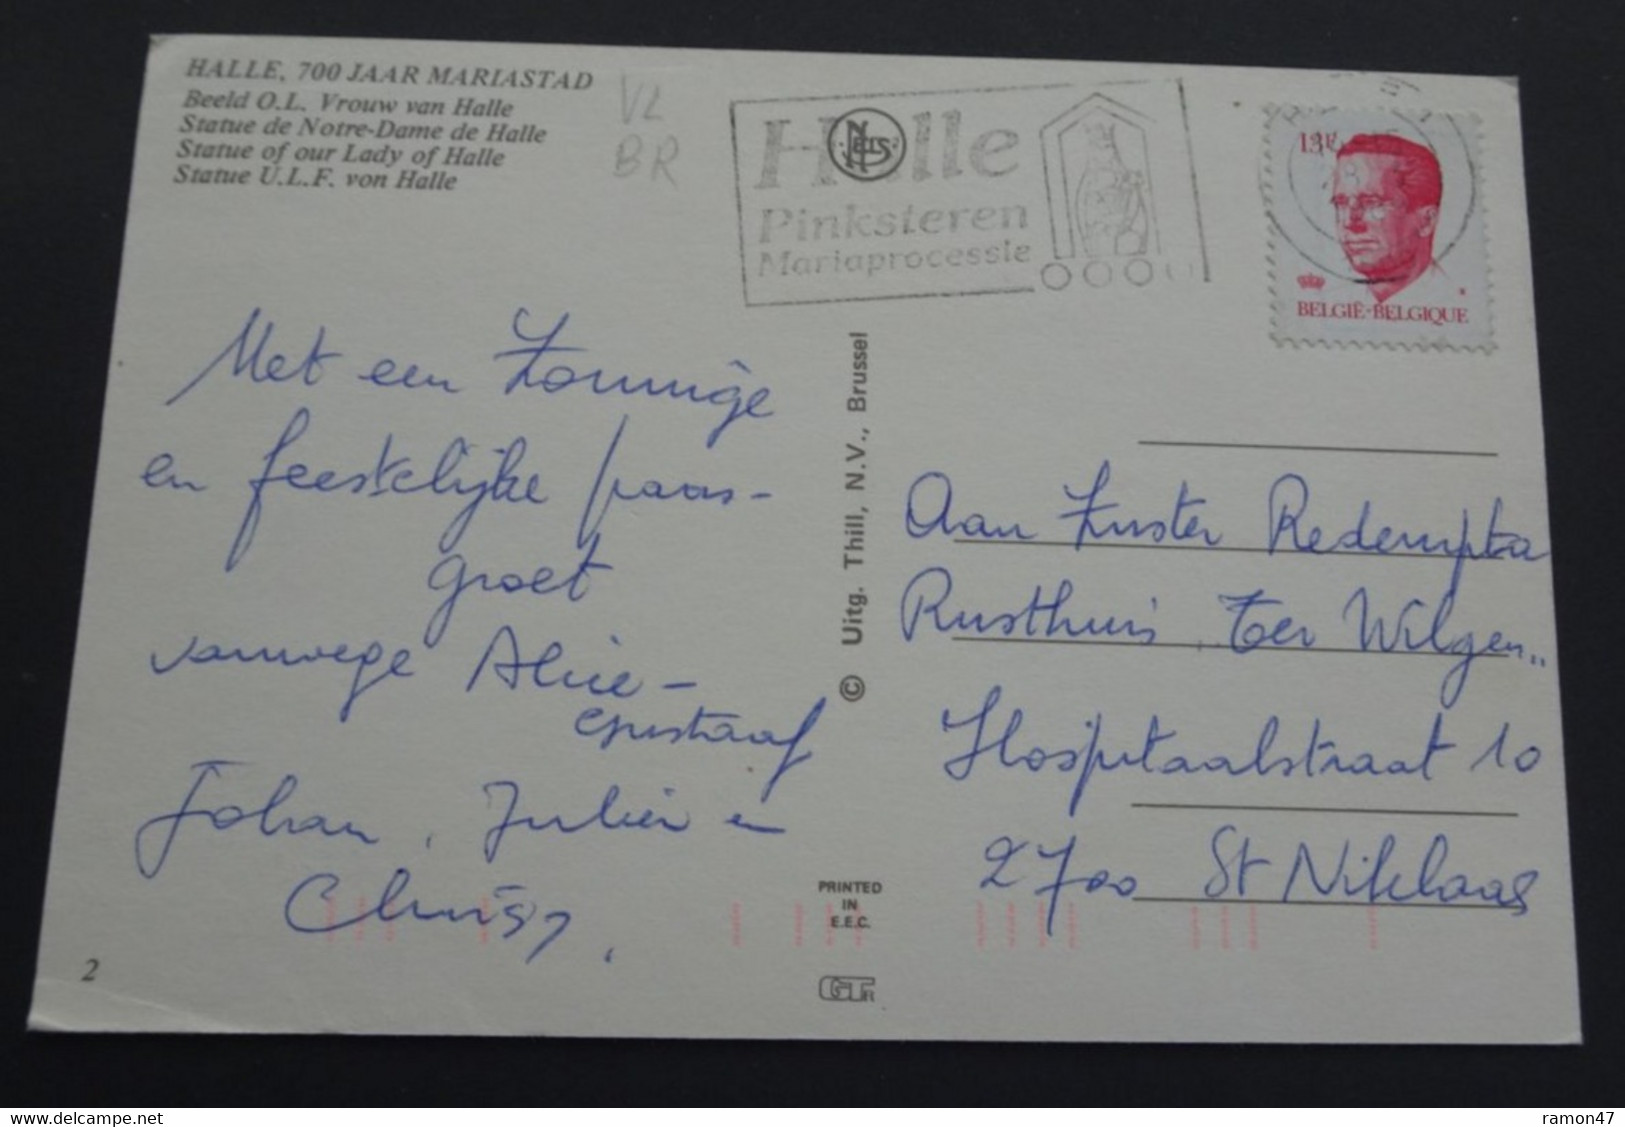 HALLE, 700 JAAR MARIASTAD
Beeld O.L. Vrouw van Halle
Statue de Notre-Dame de Halle
Statue of our Lady of Halle
Statue U.L.F. von Halle
VL
BR
Halle
Pinksteren
Mariaprocessie
NELS
13F
BELGIË-BELGIQUE
Met een zonnige
en feestelijke paas-
groet
vanwege Alice -
Gustaaf
Johan, Julien en
Chrisy.
© Uitg. Thill, N.V., Brussel
Aan Zuster Redempta
Rusthuis Ter Wilgen..
Hospitaalstraat 10
2700 St Niklaas
PRINTED
IN
E.E.C.
2
www.delcampe.net
ramon47